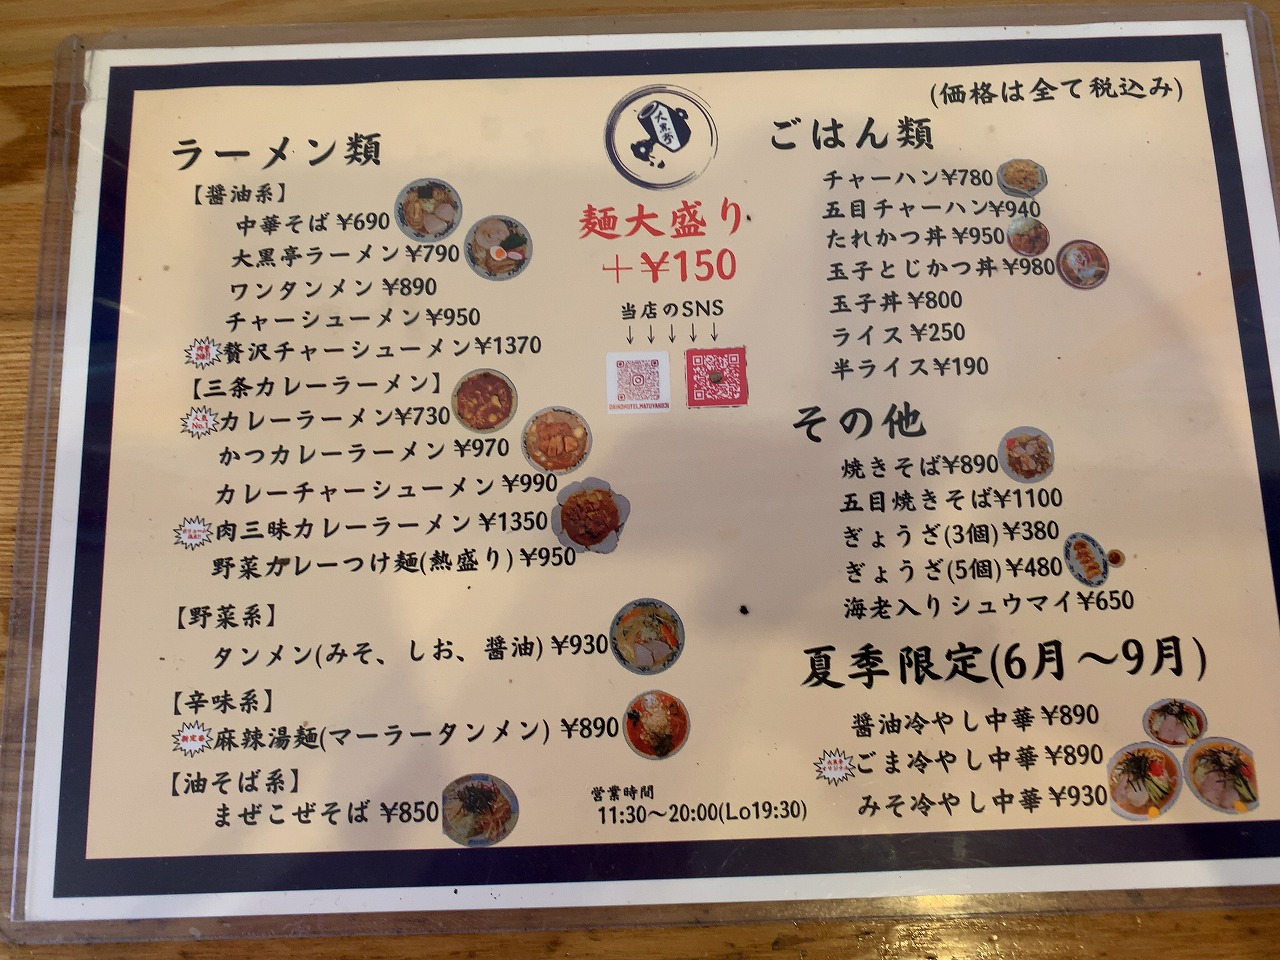 (価格は全て税込み)
ラーメン類
【醤油系】
中華そば ¥690
大黒亭ラーメン¥790
ワンタンメン ¥890
チャーシューメン¥950
贅沢チャーシューメン¥1370
【三条カレーラーメン】
人気No.1
カレーラーメン¥730
かつカレーラーメン ¥970
カレーチャーシューメン ¥990
肉三昧カレーラーメン ¥1350
野菜カレーつけ麺(熱盛り) ¥950
【野菜系】
タンメン(みそ、しお、醤油) ¥930
【辛味系】
新定番
麻辣湯麺(マーラータンメン) ¥890
【油そば系】
まぜこぜそば ¥850
大黒亭
麺大盛り
＋¥150
当店のSNS
↓ ↓ ↓ ↓ ↓
営業時間
11:30〜20:00(Lo19:30)
ごはん類
チャーハン¥780
五目チャーハン¥940
たれかつ丼 ¥950
玉子とじかつ丼 ¥980
玉子丼 ¥800
ライス ¥250
半ライス ¥190
その他
焼きそば¥890
五目焼きそば¥1100
ぎょうざ(3個) ¥380
ぎょうざ(5個) ¥480
海老入りシュウマイ¥650
夏季限定(6月〜9月)
醤油冷やし中華 ¥890
ごま冷やし中華 ¥890
みそ冷やし中華 ¥930